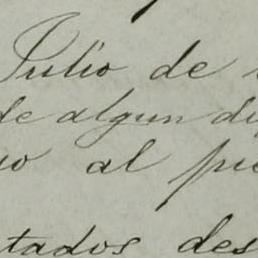 Julio de
de algun
al
tados des